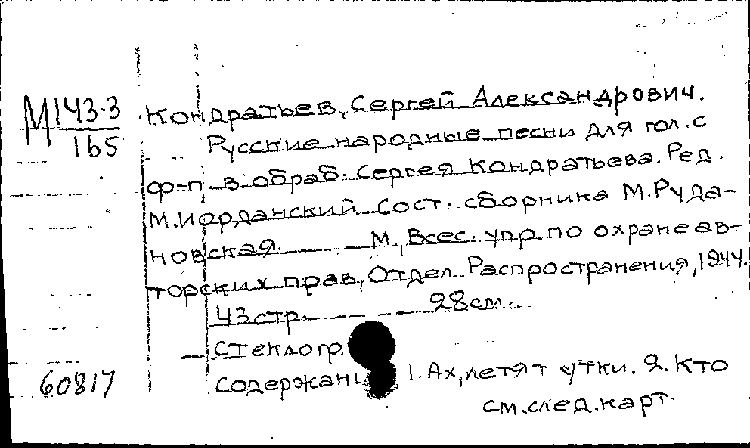 М143-3
165
Кондратьев, Сергей Александрович.
Русские народные песни для гол. с
ф-п в обраб. Сергея Кондратьева. Ред.
М. Иорданский. Сост. сборника М. Руда-
новская. М., Всес. упр. по охране ав-
торских прав, Отдел. Распространения, 1944.
43 стр. 28 см.
Стеклогр.
60817
Содержани 1. Ах, летят утки. 2. Кто
см. след. карт.